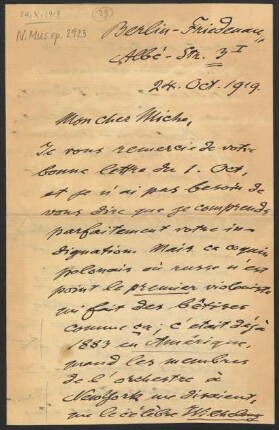 24.X.1919
(29)
N. Mus. ep. 2923
Berlin-Friedenau,
Albé-Str. 3 I
24. Oct. 1919
Mon cher Miche,
Je vous remercie de votre
bonne lettre du 1. Oct,
et je n'ai pas besoin de
vous dire que je comprends
parfaitement votre in-
dignation. Mais ce coquin
polonais ou russe n'est
point le premier violoniste
qui fait des bêtises
comme ça; c'était déjà
1883 en Amérique,
quand les membres
de l'orchestre à
New York me disaient,
que le célèbre Wilhelmj